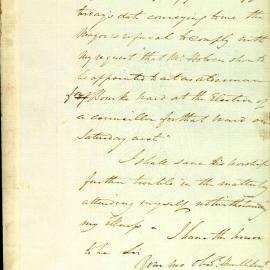 today's date conveying to me the
Mayor's refusal to comply with
my request that Mr. should
be appointed to act as alderman
of Bourke Ward at the Election of
a councillor for that Ward on
Saturday next.
I shall save his Worship
further trouble in the matter by
attending myself notwithstanding
my illness - I have the honor
to be Sir
Your mo Obdt. Servt